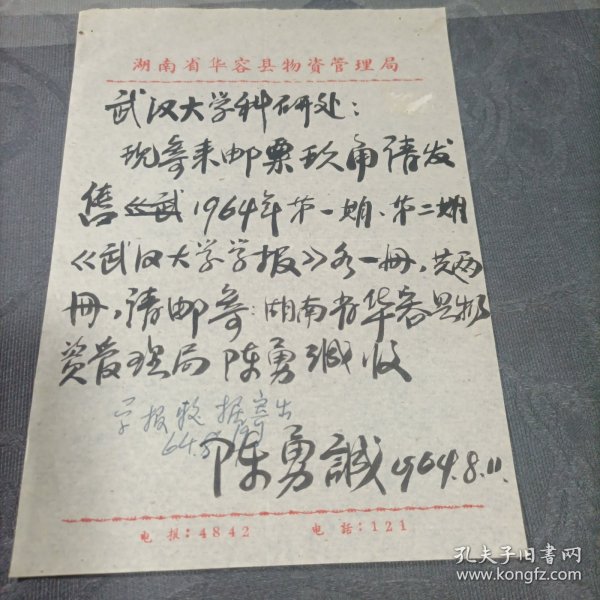 湖南省华容县物资管理局
武汉大学科研处：
现寄来邮票玖角请发
售《武 1964年第一期、第二期
《武汉大学学报》各一册，共两
册，请邮寄：湖南省华容县物
资管理局 陈勇诚收
学报 据寄出
陈勇誠 1964.8.11.
电报：4842 电话：121
孔夫子旧书网
www.kongfz.com